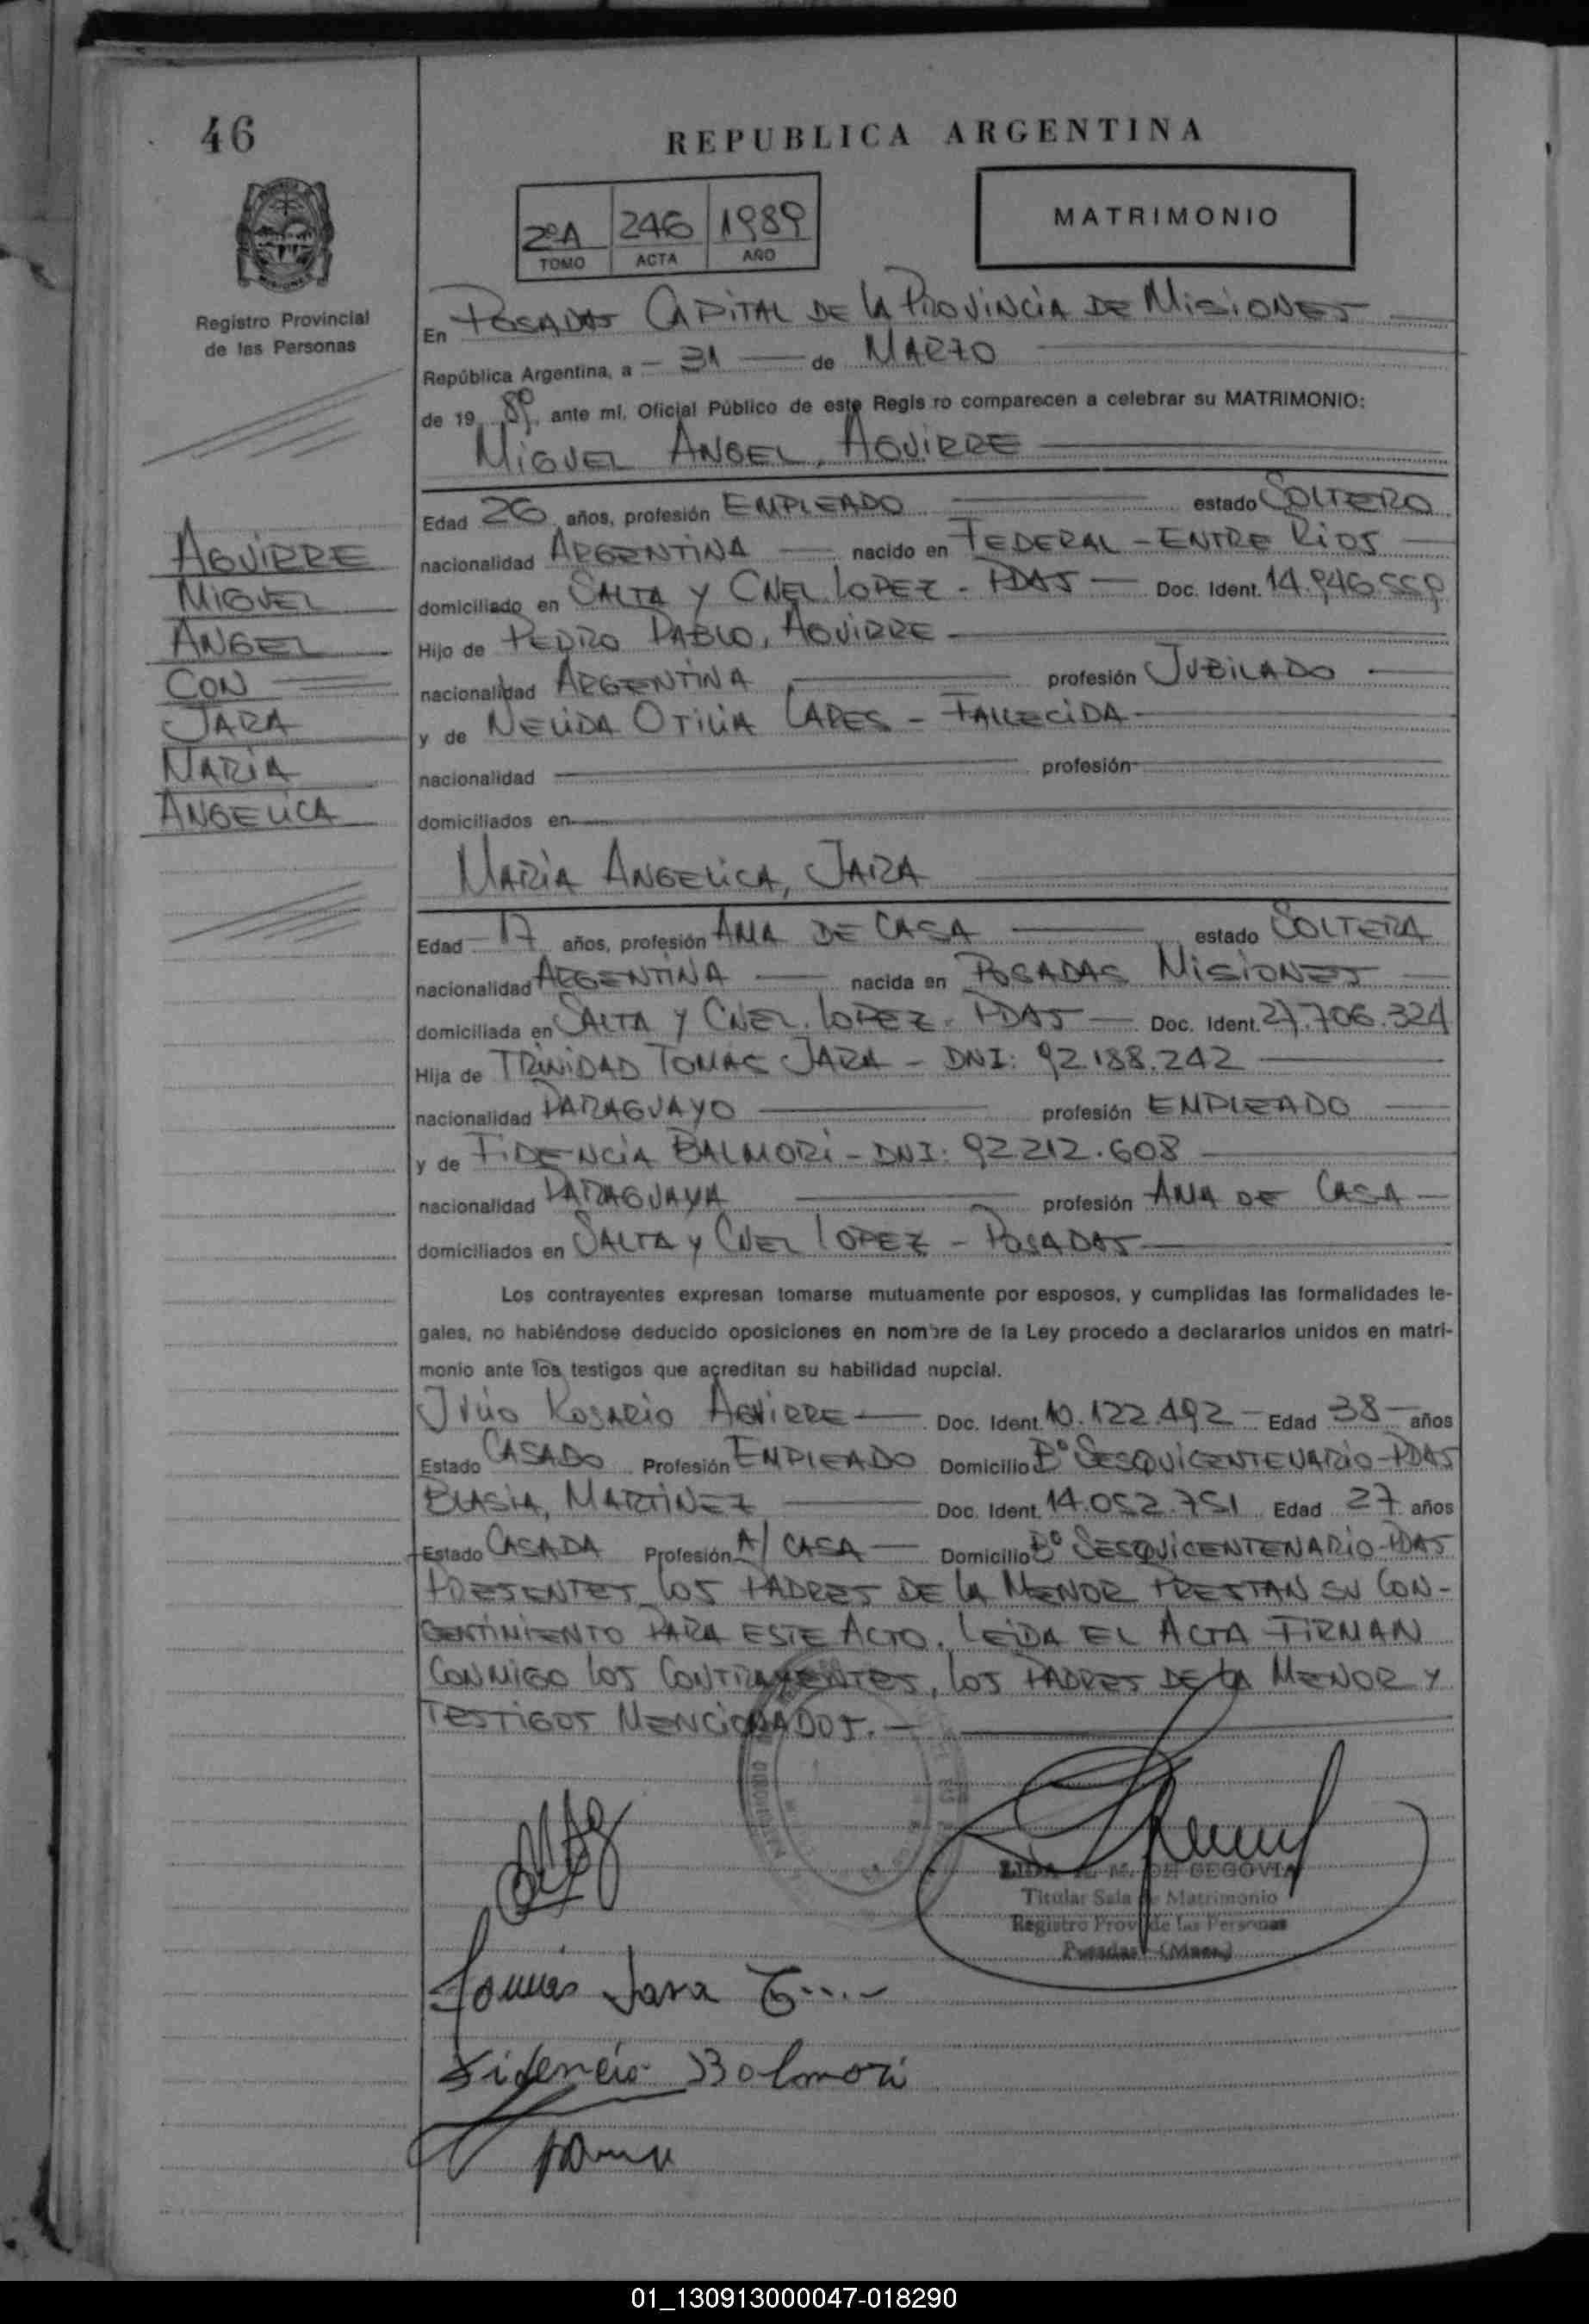 46
REPUBLICA ARGENTINA
2ºA 246 1989
TOMO ACTA AÑO
MATRIMONIO
Registro Provincial
de las Personas
En POSADAS CAPITAL DE LA PROVINCIA DE MISIONES
República Argentina, a - 31 - de MARZO
de 19 89, ante mí, Oficial Público de este Regis ro comparecen a celebrar su MATRIMONIO:
MIGUEL ANGEL, AGUIRRE
Edad 26 años, profesión EMPLEADO estado SOLTERO
nacionalidad ARGENTINA nacido en FEDERAL - ENTRE RIOS
domiciliado en SALTA Y CNEL. LOPEZ - PDAS - Doc. Ident. 14.946.559
Hijo de PEDRO PABLO, AGUIRRE
nacionalidad ARGENTINA profesión JUBILADO
y de NELIDA OTILIA LAPES - FALLECIDA
nacionalidad profesión
domiciliados en
AGUIRRE
MIGUEL
ANGEL
CON
JARA
MARIA
ANGELICA
MARIA ANGELICA, JARA
Edad 17 años, profesión AMA DE CASA estado SOLTERA
nacionalidad ARGENTINA nacida en POSADAS MISIONES
domiciliada en SALTA Y CNEL. LOPEZ - PDAS - Doc. Ident. 21.706.324
Hija de TRINIDAD TOMAS JARA - DNI: 92.188.242
nacionalidad PARAGUAYO profesión EMPLEADO
y de FIDENCIA BALMORI - DNI: 92.212.608
nacionalidad PARAGUAYA profesión AMA DE CASA
domiciliados en SALTA Y CNEL LOPEZ - POSADAS
Los contrayentes expresan tomarse mutuamente por esposos, y cumplidas las formalidades le-
gales, no habiéndose deducido oposiciones en nombre de la Ley procedo a declararlos unidos en matri-
monio ante los testigos que acreditan su habilidad nupcial.
JULIO ROSARIO AGUIRRE - Doc. Ident. 10.122.492 - Edad 38 años
Estado CASADO Profesión EMPLEADO Domicilio Bº SESQUICENTENARIO - PDAS
BLASIA, MARTINEZ - Doc. Ident. 14.052.751 Edad 27 años
Estado CASADA Profesión A/ CASA - Domicilio Bº SESQUICENTENARIO - PDAS
PRESENTES LOS PADRES DE LA MENOR PRESTAN SU CON-
SENTIMIENTO PARA ESTE ACTO. LEIDA EL ACTA FIRMAN
CONMIGO LOS CONTRAYENTES, LOS PADRES DE LA MENOR Y
TESTIGOS MENCIONADOS. -
M. DE SEGOVIA
Titular Sala de Matrimonio
Registro Prov. de las Personas
Posadas (Mnes.)
Tomás Jara
Fidencia Balmori
01_130913000047-018290